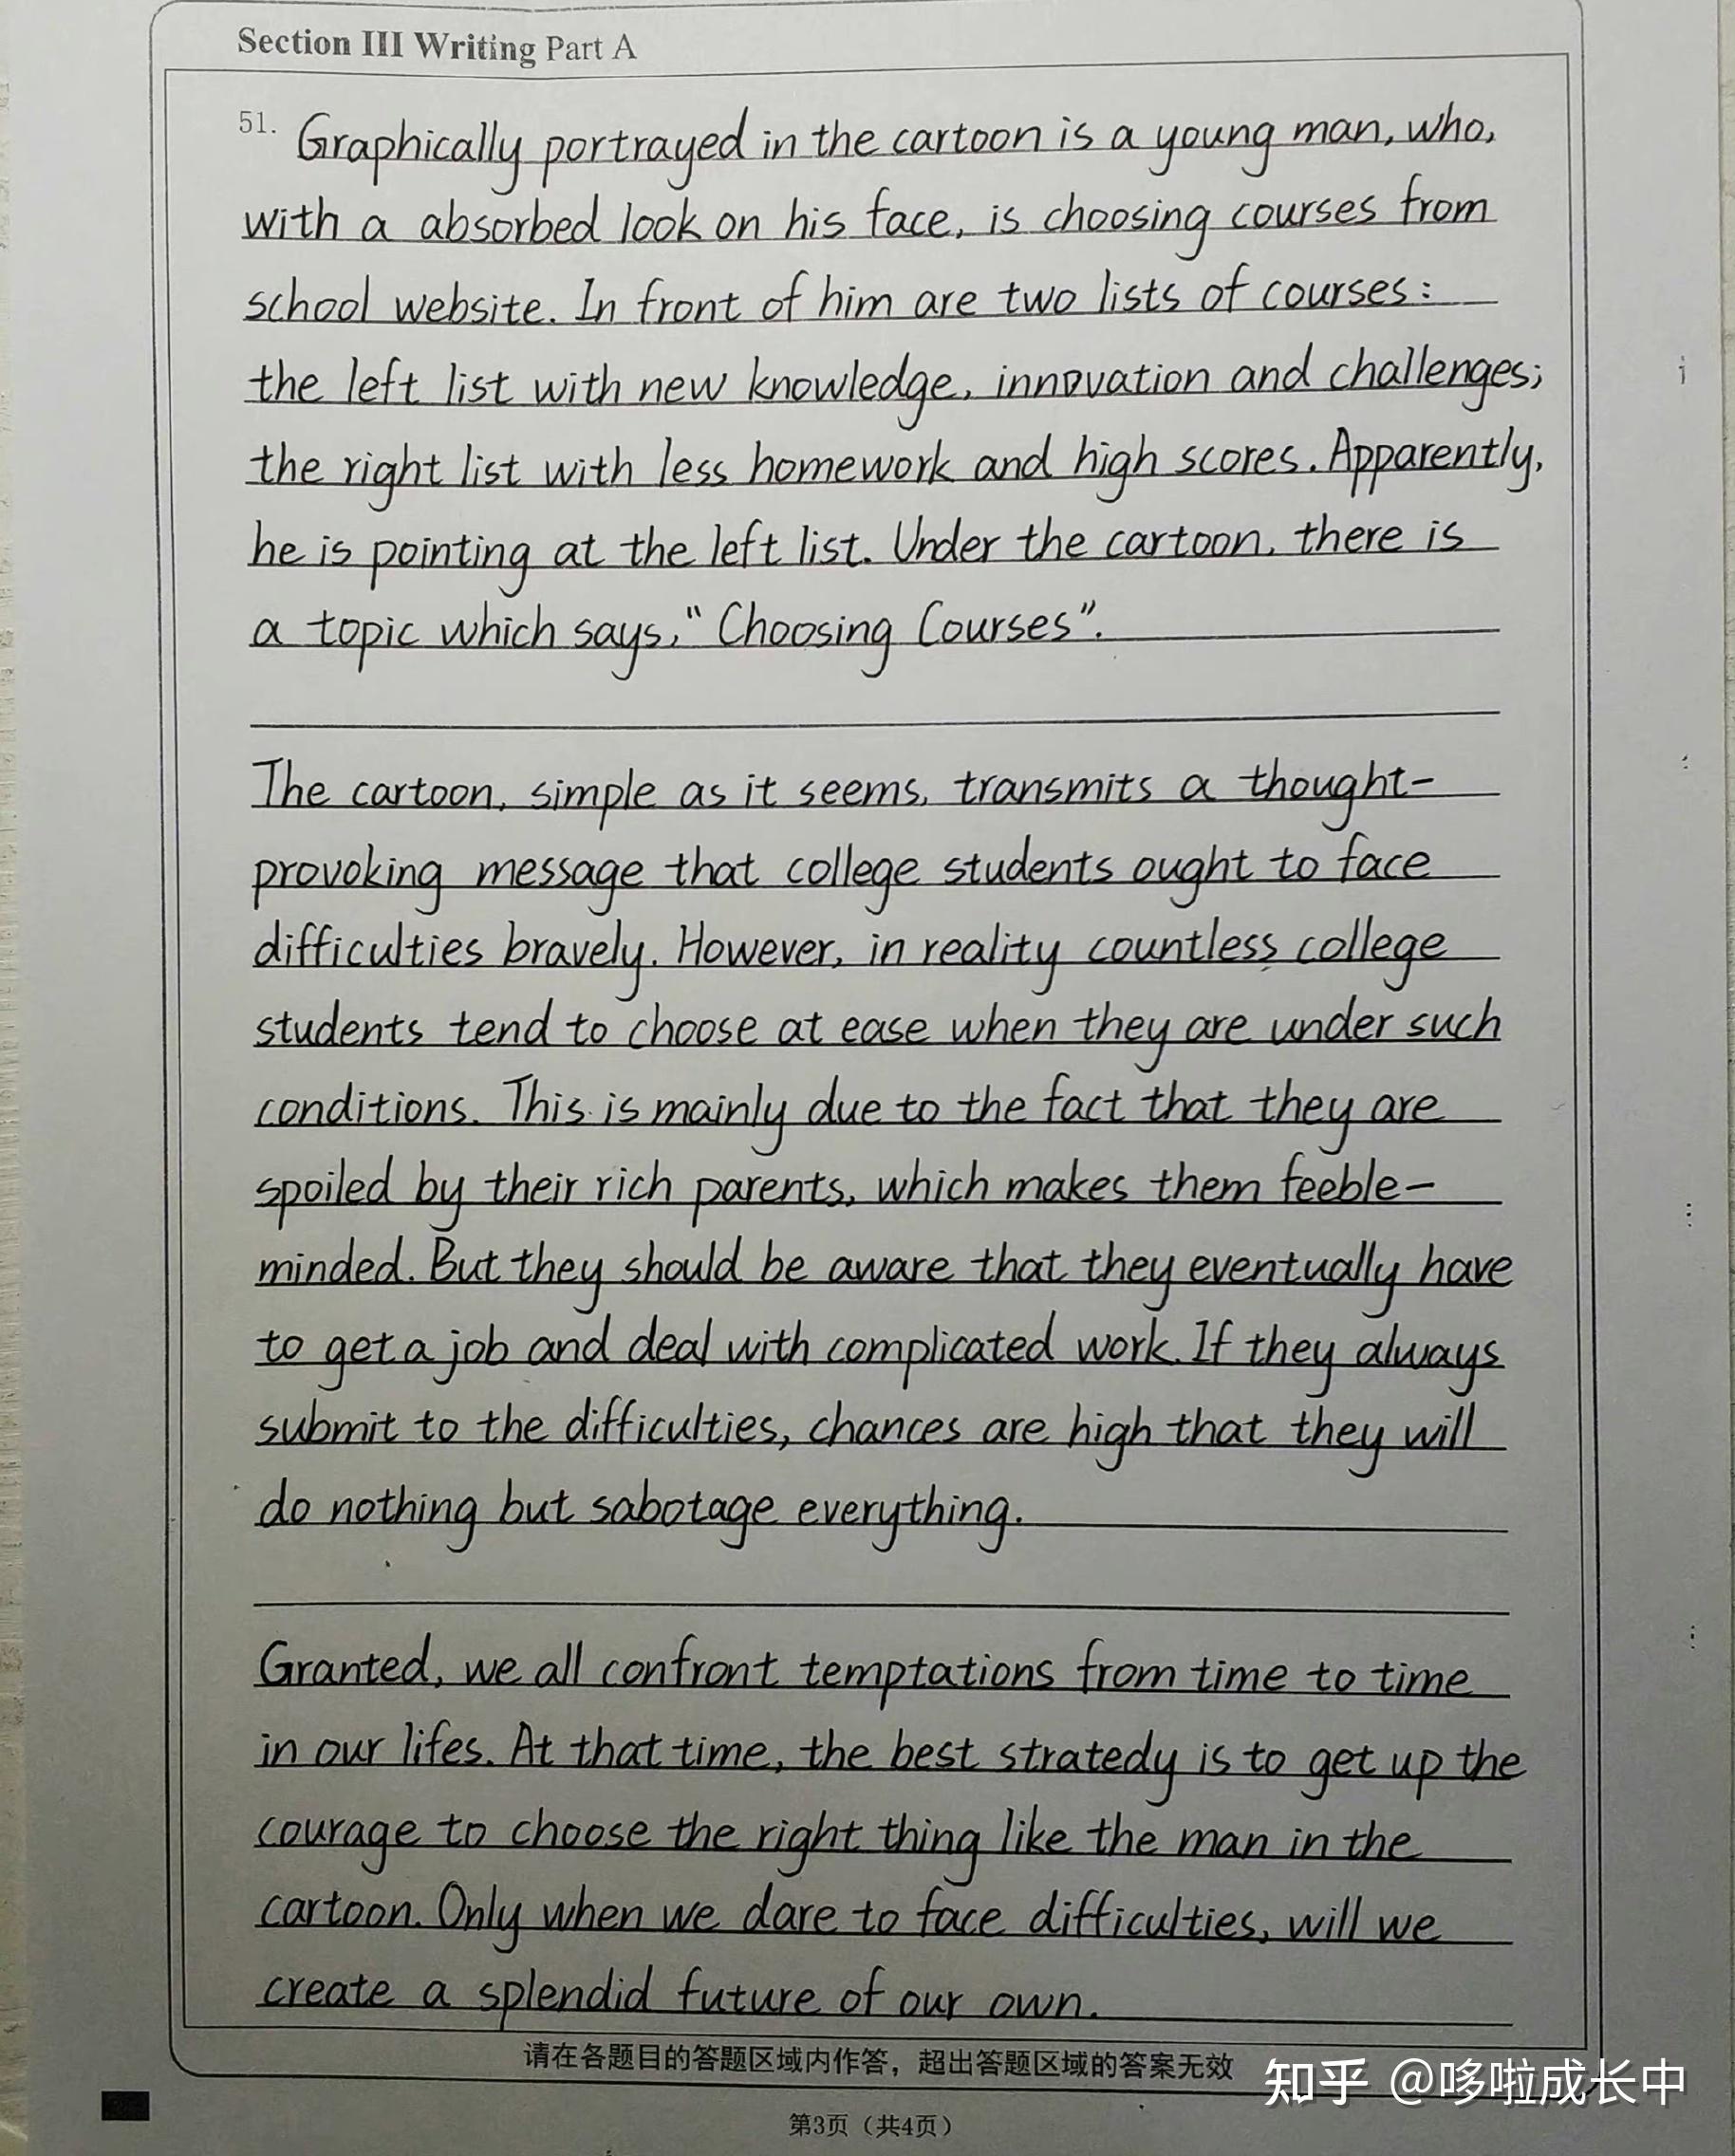 Section III Writing Part A
51. Graphically portrayed in the cartoon is a young man, who,
with a absorbed look on his face, is choosing courses from
school website. In front of him are two lists of courses:
the left list with new knowledge, innovation and challenges;
the right list with less homework and high scores. Apparently,
he is pointing at the left list. Under the cartoon, there is
a topic which says, "Choosing Courses".
The cartoon, simple as it seems, transmits a thought-
provoking message that college students ought to face
difficulties bravely. However, in reality countless college
students tend to choose at ease when they are under such
conditions. This is mainly due to the fact that they are
spoiled by their rich parents, which makes them feeble-
minded. But they should be aware that they eventually have
to get a job and deal with complicated work. If they always
submit to the difficulties, chances are high that they will
do nothing but sabotage everything.
Granted, we all confront temptations from time to time
in our lifes. At that time, the best stratedy is to get up the
courage to choose the right thing like the man in the
cartoon. Only when we dare to face difficulties, will we
create a splendid future of our own.
请在各题目的答题区域内作答，超出答题区域的答案无效
知乎 @哆啦成长中
第3页（共4页）